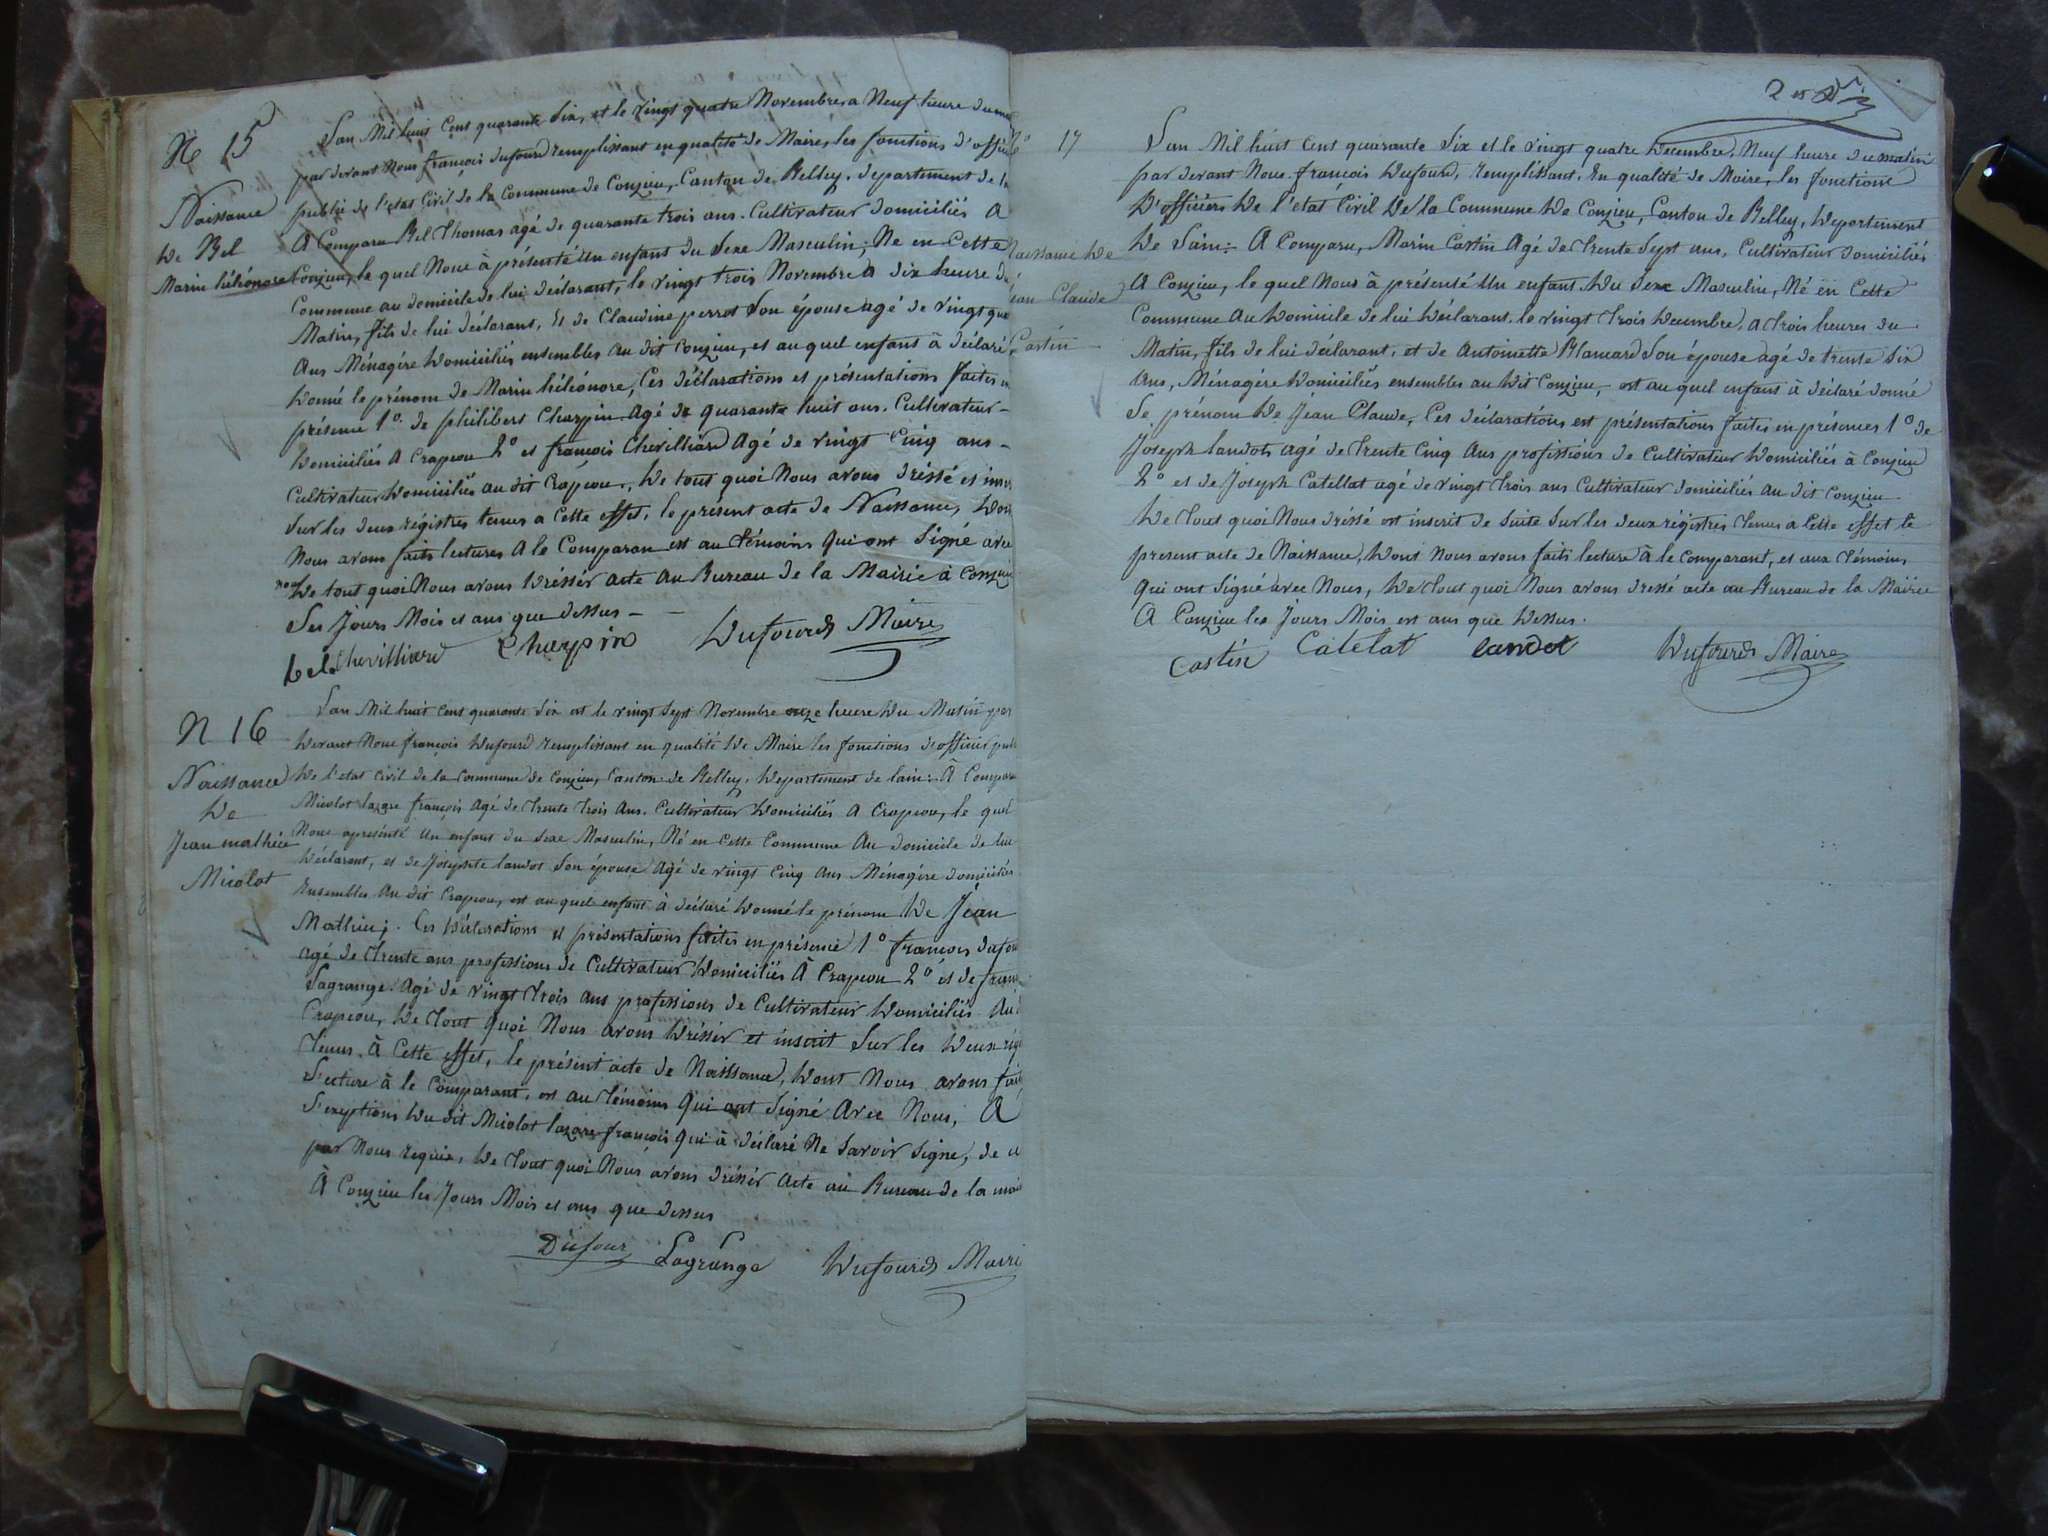 N° 15
Naissance
De Bel
Marin héléonore
L'an Mil huit Cent quarante Six, et le vingt quatre Novembre, a Neuf heure du
par devant Nous françois dufourd remplissant en qualité de Maire, les fonctions d'offici
public de l'état Civil de la Commune de Conzieu, Canton de Belley, departement de l
A Comparu Bel Thomas agé de quarante trois ans. Cultivateur domiciliés A
Conzieu, le quel Nous à présenté Un enfant du Sexe Masculin; Né en Cette
Commune au domicile de lui déclarant, le vingt trois Novembre a dix heure du
Matin, fils de lui déclarant, Et de Claudine perrot Son épouse agé de vingt qua
Ans Ménagère Domiciliés ensembles au dit Conzieu, et au quel enfant à déclaré
Donné le prénom de Marin héléonore, Ces déclarations et présentations faites en
présence 1° de philibert Charpin agé de quarante huit ans. Cultivateur –
Domiciliés A Crapeou 2° et françois Chevilliard Agé de vingt Cinq ans –
Cultivateur Domiciliés au dit Crapeou, De tout quoi Nous avons dréssé et inscr
Sur les deux régistres tenus a Cette effet, le présent acte de Naissance, Dont
Nous avons faits lectures A le Comparan est au témoins Qui ont Signé avec
nous De tout quoi Nous avons Dréssér acte au Bureau de la Mairie à Conzieu
Les Jours Mois et ans que dessus –
bel Chevilliard Charpin Dufourd Maire
N 16
Naissance
De
Jean mathieu
Miolot
L'an Mil huit Cent quarante Six est le vingt Sept Novembre onze heure Du Matin par
Devant Nous françois Dufourd remplissant en qualité De Maire les fonctions d'officier pub
De l'état Civil de la Commune de Conzieu, Canton de Belley, Departement de lain: A Compa
Miolot lazare françois Agé de trente trois Ans. Cultivateur Domiciliés A Crapeou, le quel
Nous apresénté Un enfant du Sexe Masculin, Né en Cette Commune Au domicile de lui
Déclarant, et de Josephte landot Son épouse Agé de vingt Cinq Ans Ménagère domiciliés
Ensembles Au dit Crapeou, est au quel enfant à déclaré Donné le prénom De Jean
Mathieu; Ces Déclarations et présentations faites en présence 1° francois dufou
agé de trente ans professions de Cultivateur Domiciliés A Crapeou 2° et de fran
Lagrange Agé de vingt trois ans professions de Cultivateur Domiciliés Au
Crapeou, De tout Quoi Nous avons Dréssér et inscrit Sur les Deux rég
tenus A Cette effet, le présent acte de Naissance, Dont Nous avons fait
Lecture à le Comparant, est au témoins Qui ont Signé Avec Nous, A
L'exeptions Du dit Miolot lazare françois Qui à déclaré Ne Savoir Signé, de
par Nous requis, De tout quoi Nous avons dréssér Acte au Bureau de la mai
A Conzieu les Jours Mois et ans que dessus
Dufour Lagrange Dufourd Maire
2
17
Naissance De
Jean Claude
Castin
L'an Mil huit Cent quarante Six et le vingt quatre Decembre, Neuf heure du matin
par devant Nous françois Dufourd, remplissant, En qualité de Maire, les fonctions
D'officiers De l'état Civil De la Commune De Conzieu, Canton de Belley, Departement
De Lain: A Comparu, Marin Castin Agé de trente Sept ans, Cultivateur domiciliés
A Conzieu, le quel Nous à présenté Un enfant Du Sexe Masculin, Né en Cette
Commune Au Domicile de lui Déclarant, le vingt trois Decembre, a trois heures du
Matin, fils de lui déclarant, et de Antoinette Blancard Son épouse agé de trente Six
Ans, Ménagère Domiciliés ensembles au Dit Conzieu, est au quel enfant à déclaré donné
Le prénom De Jean Claude, Ces déclarations est présentations faites en présences 1° de
Joseph landot, agé de trente Cinq Ans professions de Cultivateur Domiciliés à Conzieu
2° et de Joseph Catellat agé de vingt trois ans Cultivateur domiciliés au dit Conzieu
De tout quoi Nous dréssé est inscrit de Suite Sur les deux régistres tenus a Cette effet le
present acte de Naissance, Dont Nous avons faits lecture à le Comparant, et aux témoins
Qui ont Signé avec Nous, De tout quoi Nous avons dressé acte au Bureau de la Mairie
A Conzieu les Jours Mois est ans que Dessus.
Castin Catelat landot Dufourd Maire